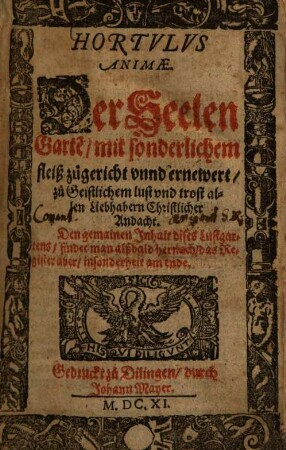 HORTVLVS
ANIMÆ.
Der Seelen
Gartē / mit sonderlichem
fleiß zůgericht vnnd ernewert /
zů Geistlichem lust vnd trost al-
len Liebhabern Christlicher
Andacht.
Den gemainen Inhalt dises Lustgar-
tens / findet man alßbald hernach / das Re-
gister aber / insonderheit am ende.
HIS QVI DILIGVNT
Gedruckt zů Dilingen / durch
Johann Mayer.
M. DC. XI.